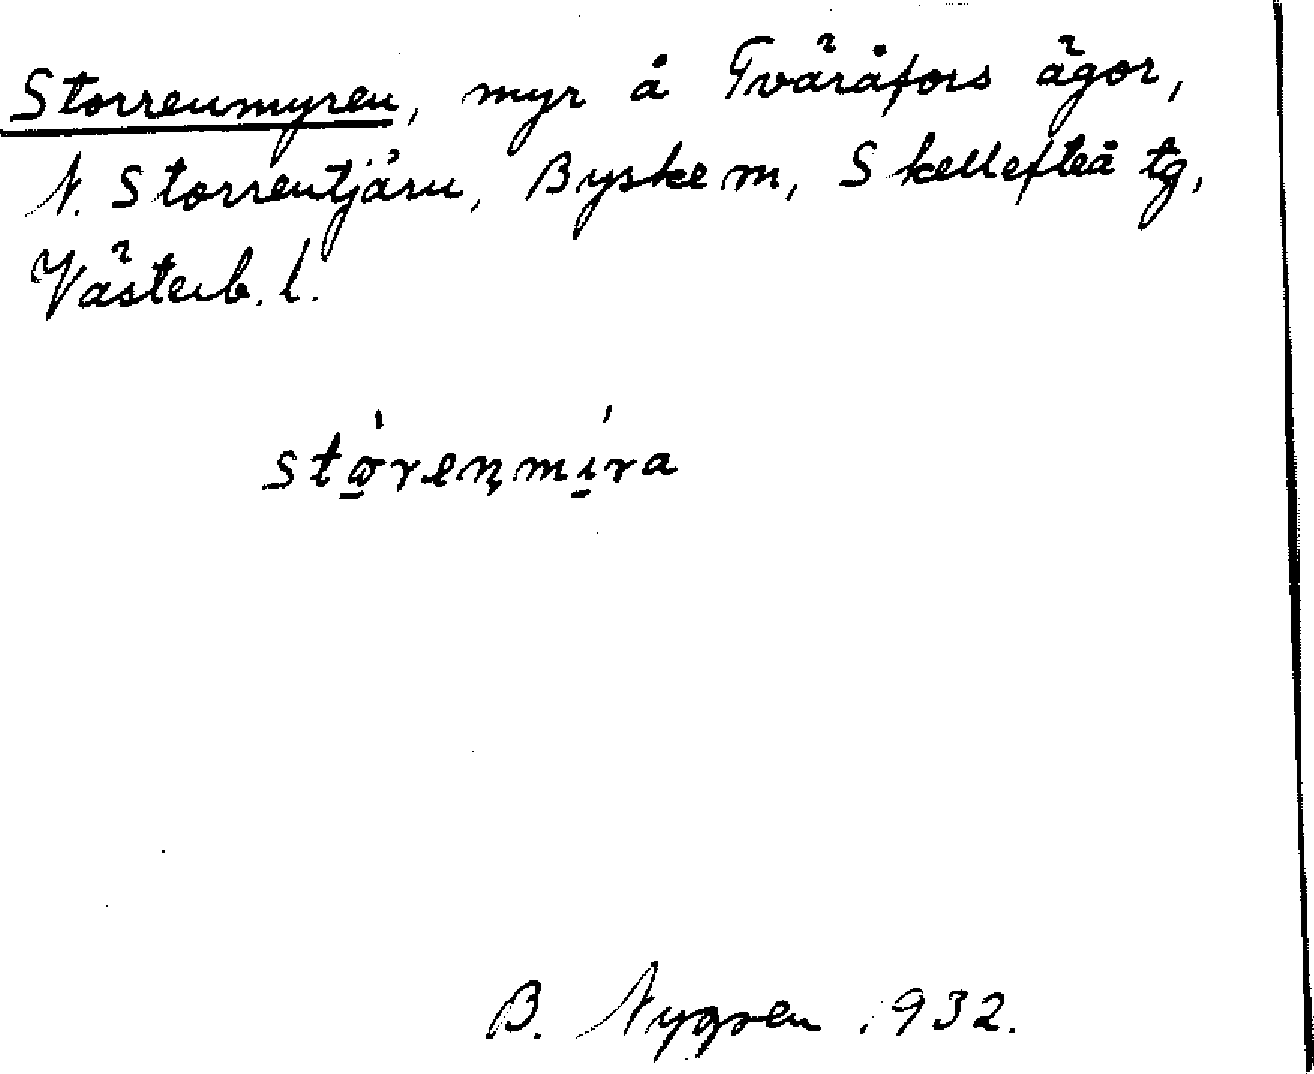 Storrenmyren, myr å Tväråfors ägor,
N. Storrentjärn, Byske m, Skellefteå tg,
Västerb. l.
stǿrenmíra
B. Nygren 1932.